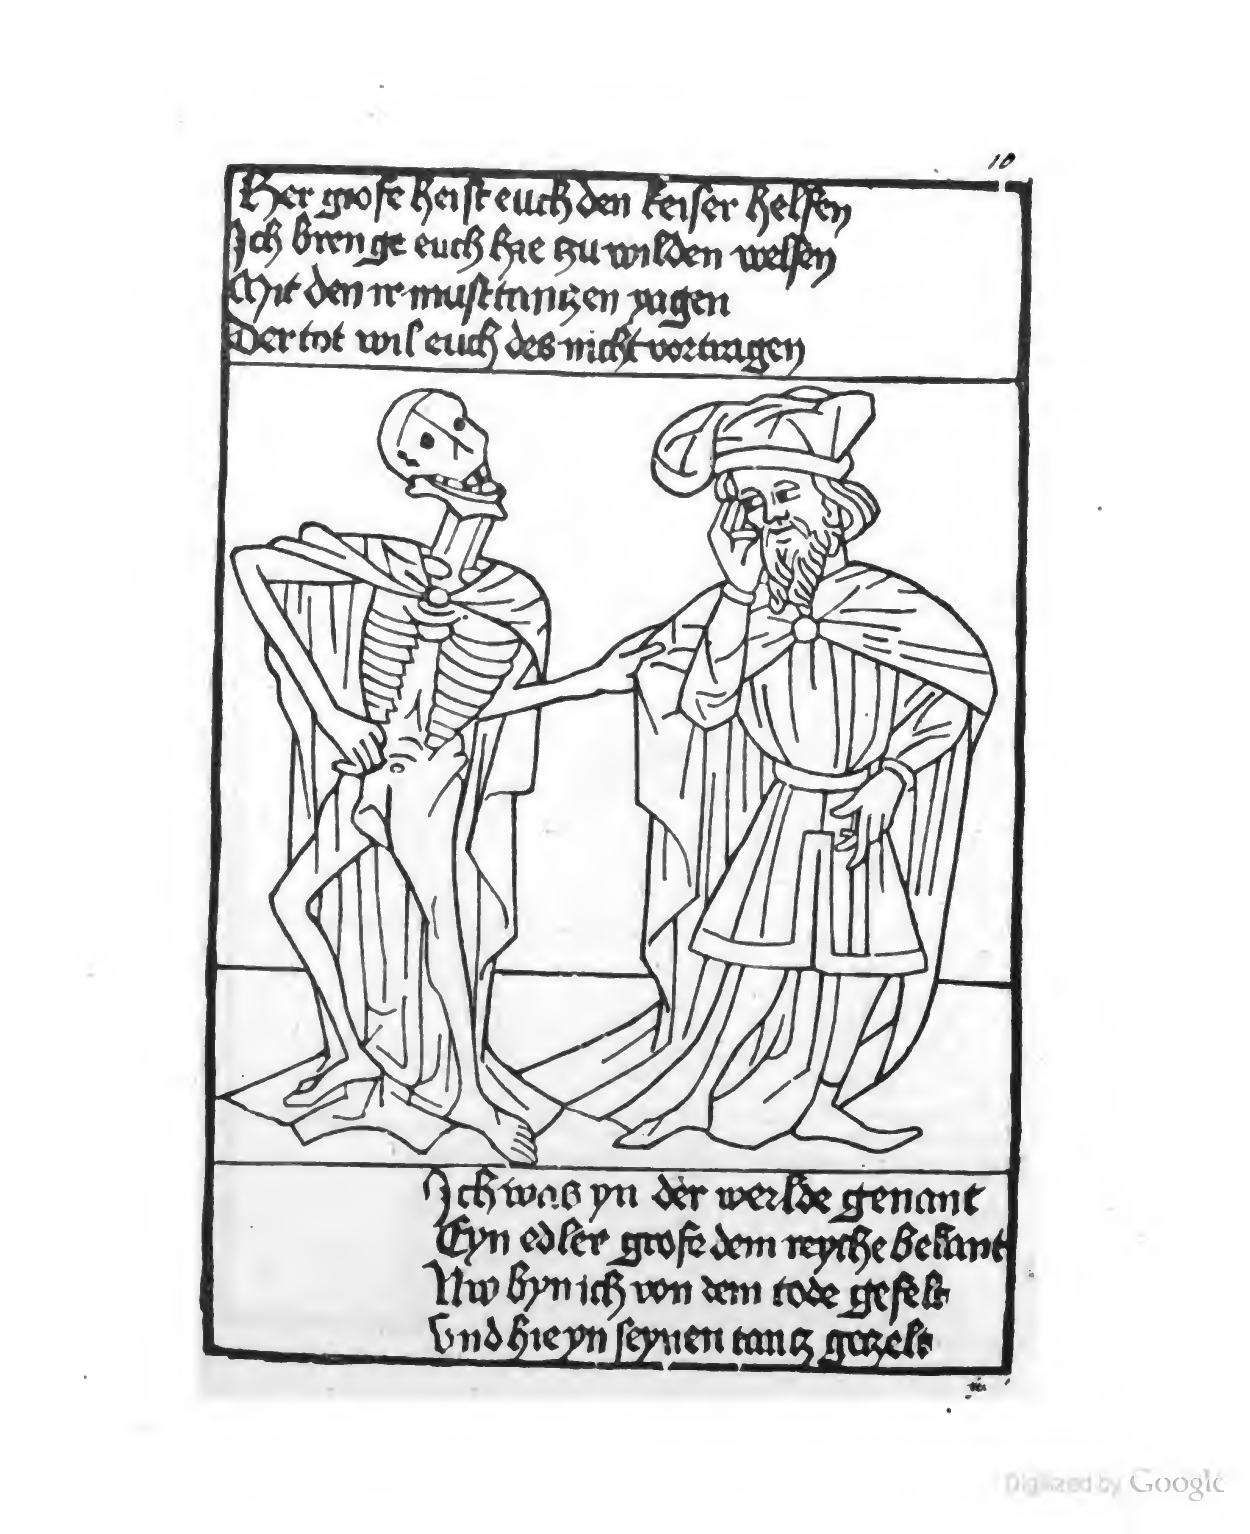 10
Her grofe heist euch den keiser helfen
Ich brenge euch hye tzu wilden welfen
Mit den ir must tantzen yagen
Der tot wil euch des nicht vortragen
Ich was yn der werlde genant
Eyn edler grofe dem reyche bekant
Nw byn ich von dem tode gefelt
Vnd hie yn seynen tantz getzelt
Digitized by Google